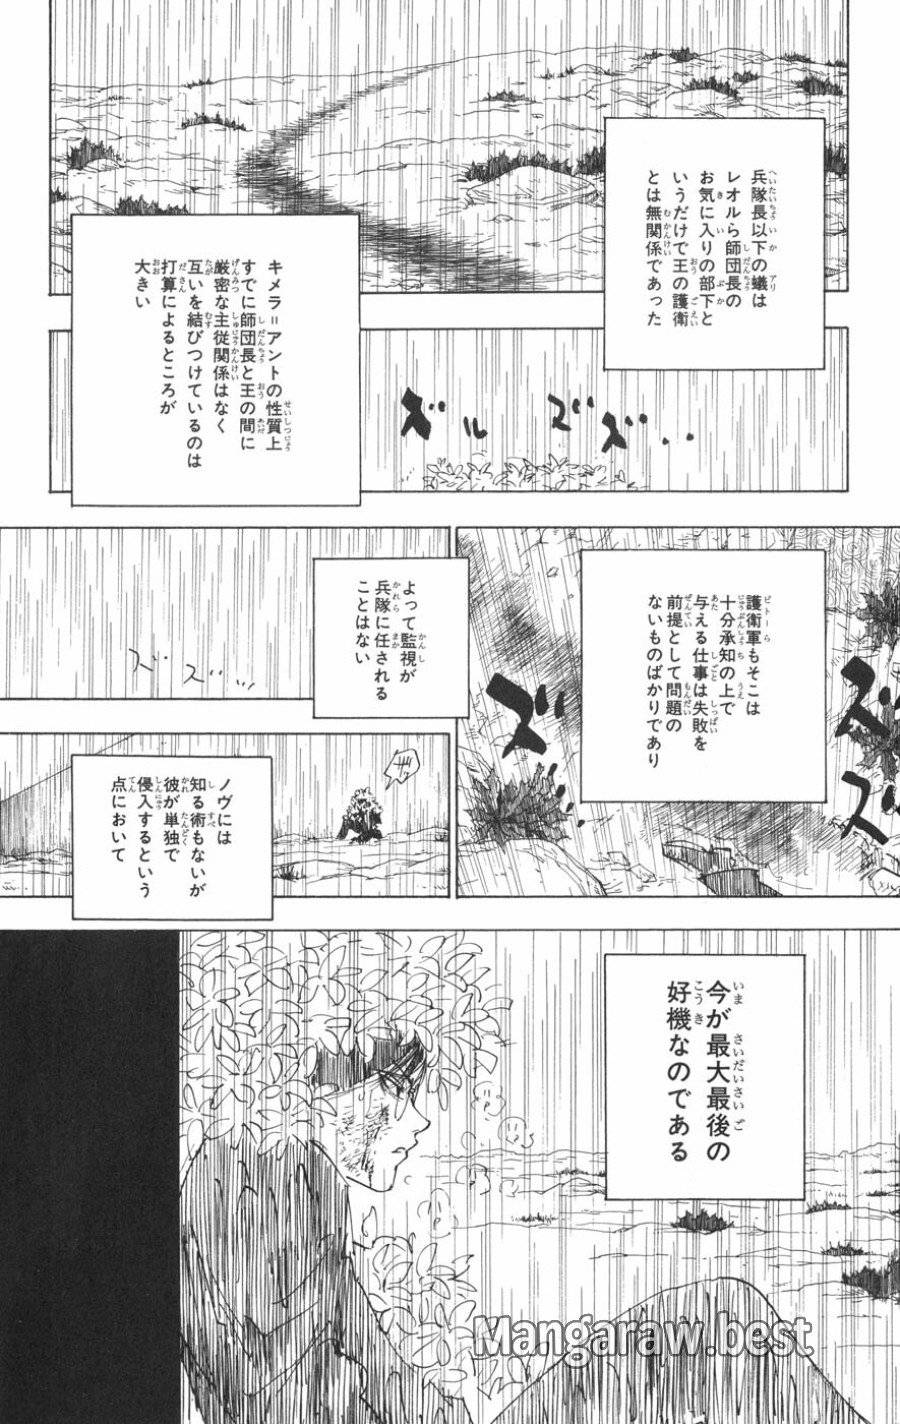 兵隊長以下の蟻は
レオルら師団長の
お気に入りの部下と
いうだけで王の護衛
とは無関係であった
キメラ＝アントの性質上
すでに師団長と王の間に
厳密な主従関係はなく
互いを結びつけているのは
打算によるところが
大きい
ズル
ズズ‥
護衛軍もそこは
十分承知の上で
与える仕事は失敗を
前提として問題の
ないものばかりであり
ズズ
ズズ
よって監視が
兵隊に任される
ことはない
ズズ‥
ノヴには
知る術もないが
彼が単独で
侵入するという
点において
今が最大最後の
好機なのである
Mangaraw.best